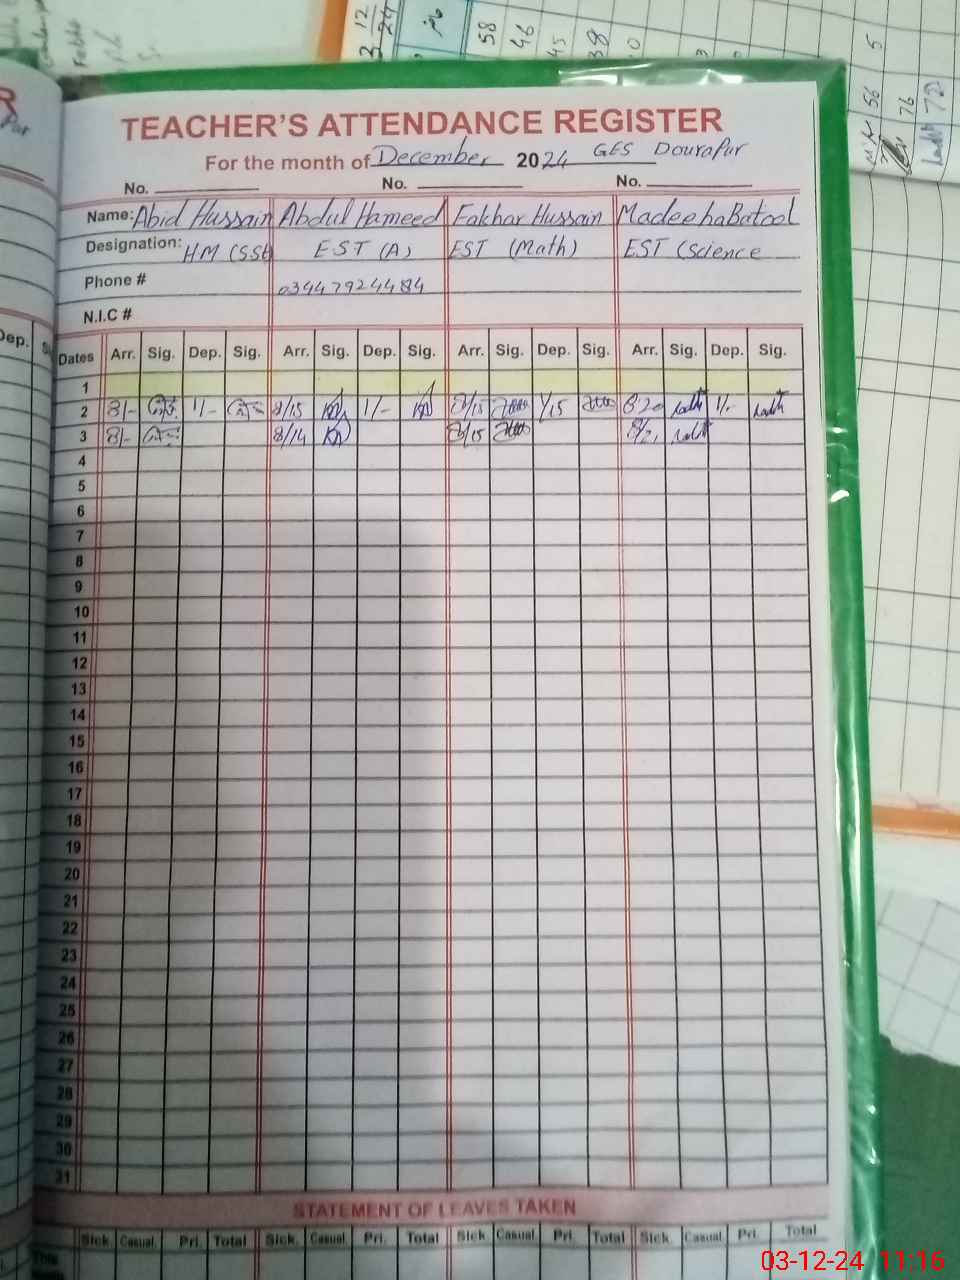 TEACHER'S ATTENDANCE REGISTER
For the month of December 2024 GES Dourapur
No. No. No.
Name: Abid Hussain Abdul Hameed Fakhar Hussain Madeeha Batool
Designation: HM (SSE) EST (A) EST (Math) EST (Science
Phone # 03447924484
N.I.C #
Dates Arr. Sig. Dep. Sig. Arr. Sig. Dep. Sig. Arr. Sig. Dep. Sig. Arr. Sig. Dep. Sig.
1
2 8/- 1/- 8/15 1/- 8/15 1/15 8:20 1/-
3 8/- 8/14 8/15 8/21
4
5
6
7
8
9
10
11
12
13
14
15
16
17
18
19
20
21
22
23
24
25
26
27
28
29
30
31
STATEMENT OF LEAVES TAKEN
Sick. Casual. Pri. Total Sick. Casual. Pri. Total Sick. Casual. Pri. Total Sick. Casual. Pri. Total
This
03-12-24 11:16
R
Dep.
12
24
58
46
45
38
0
5
56
76
72